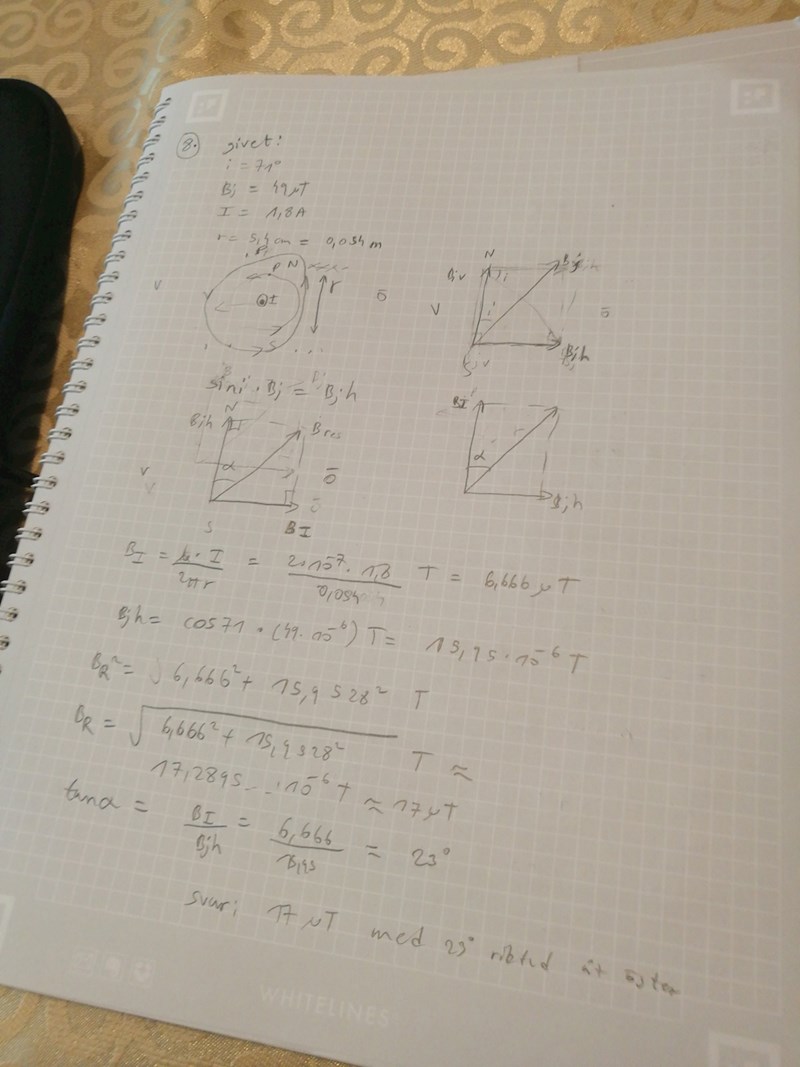 8. givet:
i = 71°
Bj = 49 μT
I = 1,8A
r = 5,4 cm = 0,054 m
P N
V I r ō
S
N
Bjv i
V i ō
S Bjh
sin i · Bj = Bjh
N
Bjh Bres
V α ō
S BI
BI
α
Bjh
BI = μ · I / 2πr = 2·10⁻⁷ · 1,8 / 0,054 T = 6,666 μT
Bjh = cos71 · (49 · 10⁻⁶) T = 15,95 · 10⁻⁶ T
BR² = √ 6,666² + 15,9528² T
BR = √ 6,666² + 15,9528² T ≈
17,2895... · 10⁻⁶ T ≈ 17 μT
tanα = BI / Bjh = 6,666 / 15,95 = 23°
svar: 17 μT med 23° riktad åt öster
WHITELINES